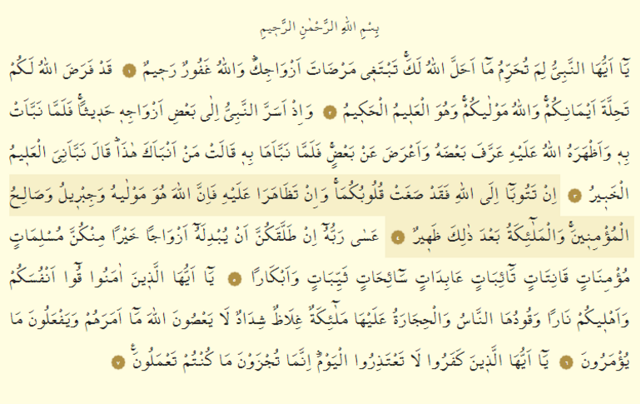 بِسْمِ اللهِ الرَّحْمٰنِ الرَّح۪يمِ
يَٓا اَيُّهَا النَّبِيُّ لِمَ تُحَرِّمُ مَٓا اَحَلَّ اللهُ لَكَۚ تَبْتَغ۪ي مَرْضَاتَ اَزْوَاجِكَۜ وَاللهُ غَفُورٌ رَح۪يمٌ ﴿١﴾ قَدْ فَرَضَ اللهُ لَكُمْ
تَحِلَّةَ اَيْمَانِكُمْۚ وَاللهُ مَوْلٰيكُمْۚ وَهُوَ الْعَل۪يمُ الْحَك۪يمُ ﴿٢﴾ وَاِذْ اَسَرَّ النَّبِيُّ اِلٰى بَعْضِ اَزْوَاجِه۪ حَد۪يثاًۚ فَلَمَّا نَبَّاَتْ
بِه۪ وَاَظْهَرَهُ اللهُ عَلَيْهِ عَرَّفَ بَعْضَهُ وَاَعْرَضَ عَنْ بَعْضٍۚ فَلَمَّا نَبَّاَهَا بِه۪ قَالَتْ مَنْ اَنْبَاَكَ هٰذَاۜ قَالَ نَبَّاَنِيَ الْعَل۪يمُ
الْخَب۪يرُ ﴿٣﴾ اِنْ تَتُوبَٓا اِلَى اللهِ فَقَدْ صَغَتْ قُلُوبُكُمَاۚ وَاِنْ تَظَاهَرَا عَلَيْهِ فَاِنَّ اللهَ هُوَ مَوْلٰيهُ وَجِبْر۪يلُ وَصَالِحُ
الْمُؤْمِن۪ينَۚ وَالْمَلٰٓئِكَةُ بَعْدَ ذٰلِكَ ظَه۪يرٌ ﴿٤﴾ عَسٰى رَبُّهُٓ اِنْ طَلَّقَكُنَّ اَنْ يُبْدِلَهُٓ اَزْوَاجاً خَيْراً مِنْكُنَّ مُسْلِمَاتٍ
مُؤْمِنَاتٍ قَانِتَاتٍ تَٓائِبَاتٍ عَابِدَاتٍ سَٓائِحَاتٍ ثَيِّبَاتٍ وَاَبْكَاراً ﴿٥﴾ يَٓا اَيُّهَا الَّذ۪ينَ اٰمَنُوا قُٓوا اَنْفُسَكُمْ
وَاَهْل۪يكُمْ نَاراً وَقُودُهَا النَّاسُ وَالْحِجَارَةُ عَلَيْهَا مَلٰٓئِكَةٌ غِلَاظٌ شِدَادٌ لَا يَعْصُونَ اللهَ مَٓا اَمَرَهُمْ وَيَفْعَلُونَ مَا
يُؤْمَرُونَ ﴿٦﴾ يَٓا اَيُّهَا الَّذ۪ينَ كَفَرُوا لَا تَعْتَذِرُوا الْيَوْمَۜ اِنَّمَا تُجْزَوْنَ مَا كُنْتُمْ تَعْمَلُونَ۟ ﴿٧﴾